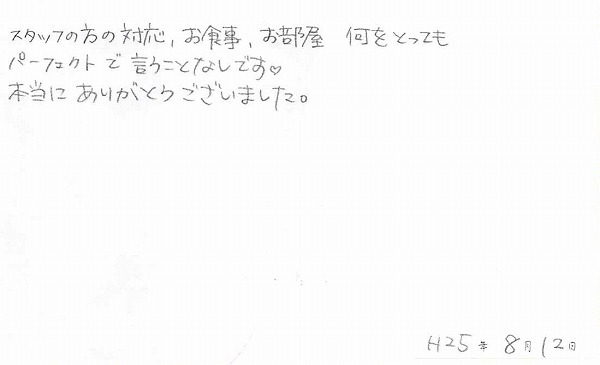 スタッフの方の対応、お食事、お部屋 何をとっても
パーフェクトで言うことなしです♡
本当にありがとうございました。
H25年8月12日